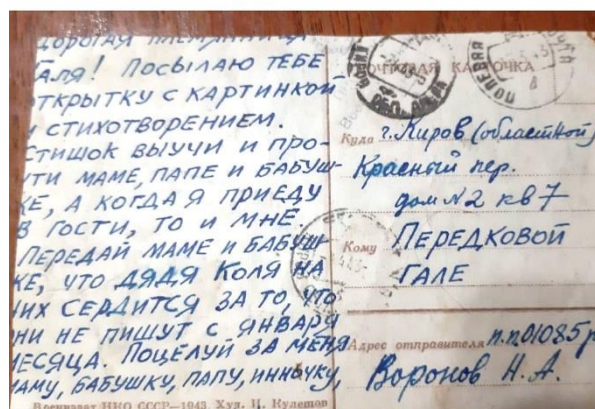 ДОРОГАЯ ПЛЕМЯННИЦА
АЛЯ! ПОСЫЛАЮ ТЕБЕ
ОТКРЫТКУ С КАРТИНКОЙ
И СТИХОТВОРЕНИЕМ.
СТИШОК ВЫУЧИ И ПРО-
ЧТИ МАМЕ, ПАПЕ И БАБУШ-
КЕ, А КОГДА Я ПРИЕДУ
В ГОСТИ, ТО И МНЕ.
ПЕРЕДАЙ МАМЕ И БАБУШ-
КЕ, ЧТО ДЯДЯ КОЛЯ НА
НИХ СЕРДИТСЯ ЗА ТО, ЧТО
ОНИ НЕ ПИШУТ С ЯНВАРЯ
МЕСЯЦА. ПОЦЕЛУЙ ЗА МЕНЯ
МАМУ, БАБУШКУ, ПАПУ, ИННОЧКУ,
Воениздат НКО СССР—1943 Худ. И. Кулешов
ПОЧТОВАЯ КАРТОЧКА
ПОЛЕВАЯ ПОЧТА
Куда г. Киров (областной)
Красный пер.
дом №2 кв 7
Кому ПЕРЕДКОВОЙ
ГАЛЕ
Адрес отправителя п.п. 01085 р
Воронов Н. А.